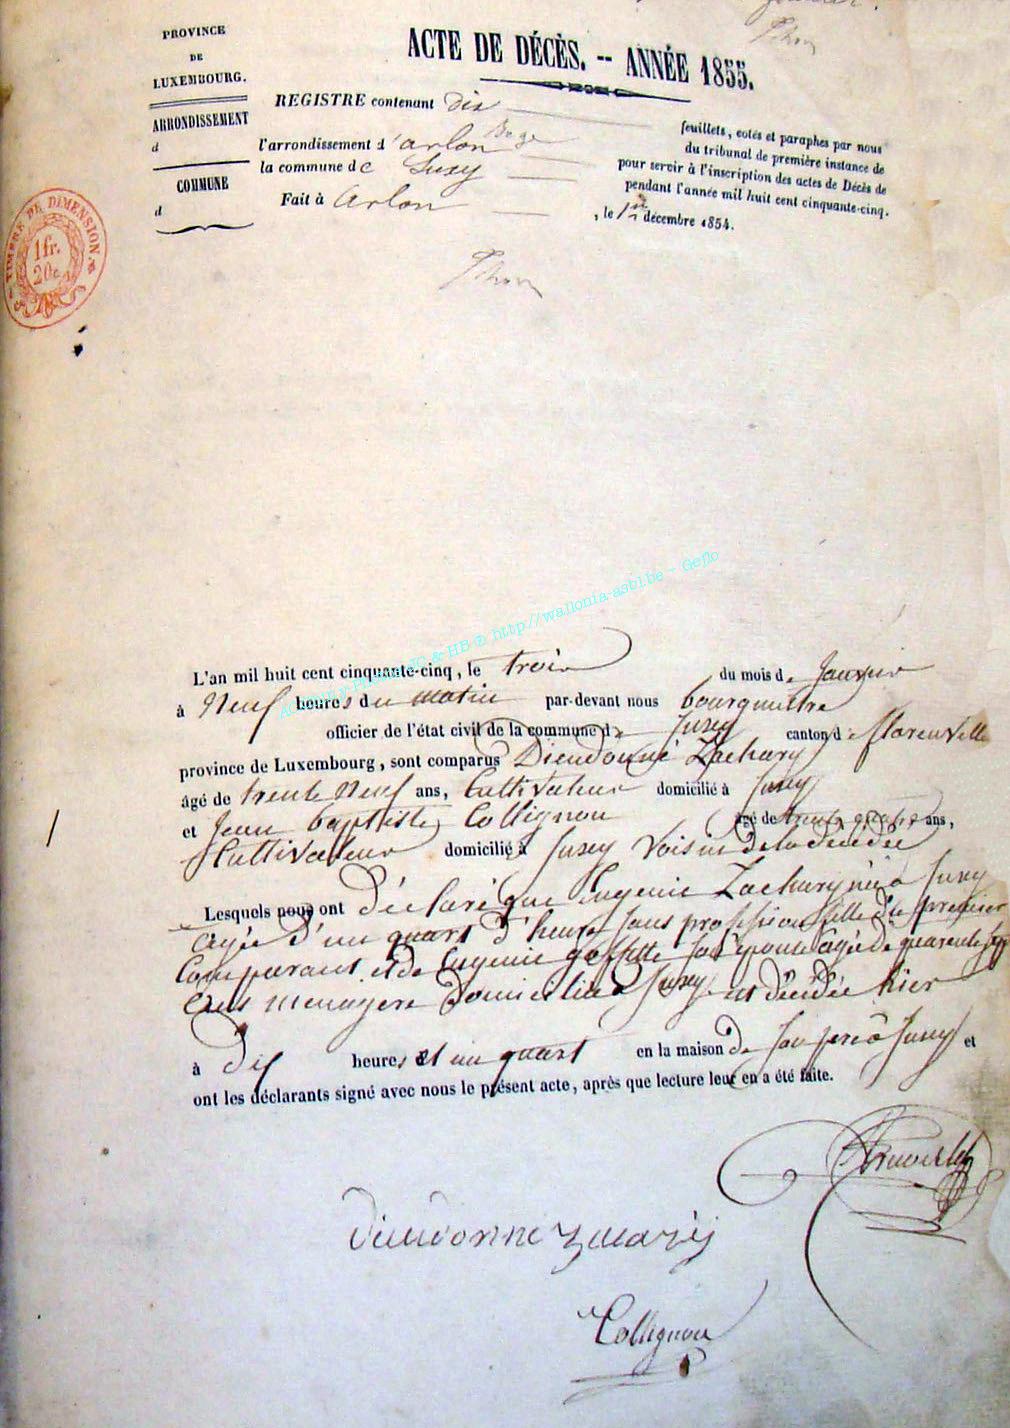 PROVINCE
DE
LUXEMBOURG.
ARRONDISSEMENT
d
COMMUNE
d
TIMBRE DE DIMENSION.
1 fr.
20c
ACTE DE DÉCÈS. -- ANNÉE 1855.
REGISTRE contenant dix feuillets, cotés et paraphés par nous
Juge du tribunal de première instance de
l'arrondissement d'arlon pour servir à l'inscription des actes de Décès de
la commune de Suxy pendant l'année mil huit cent cinquante-cinq.
Fait à Arlon, le décembre 1854.
ACTES by http://wallonia-asbl.be - Geflo
L'an mil huit cent cinquante-cinq, le trois du mois de Janvier
à Neuf heures du matin par-devant nous bourgmestre
officier de l'état civil de la commune de Suxy canton de florenville
province de Luxembourg, sont comparus Dieudonné Zachary
âgé de trente Neuf ans, Cultivateur domicilié à Suxy
et Jean baptiste Collignon âgé de trente quatre ans,
Cultivateur domicilié à Suxy Voisin de la décédée
Lesquels nous ont déclaré que Eugenie Zachary née à Suxy
agée d'un quart d'heure sans profession fille du premier
Comparant et de Eugenie goffette son épouse agée de quarente
ans menagere domiciliée à Suxy. est décédée hier
à dix heures et un quart en la maison de son père à Suxy et
ont les déclarants signé avec nous le présent acte, après que lecture leur en a été faite.
Dieudonne
Collignon